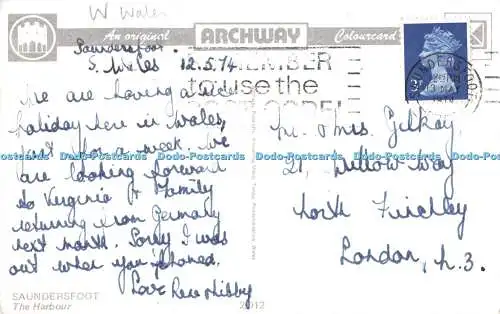 W Wales
An original ARCHWAY Colourcard
Saundersfoot.
S. Wales 12.5.74
REMEMBER
to use the
POST CODE!
SAUNDERSFOOT
1974
We are having a nice
holiday here in Wales,
just for a week. We
are looking forward
to Virginia & Family
returning from Germany
next month. Sorry I was
out when you phoned.
Love Rene & Libby
Mr. & Mrs. Gilkay,
21, Willow Way
North Finchley
London, N.3.
SAUNDERSFOOT
The Harbour
2012
Dodo-Postcards Dodo-Postcards Dodo-Postcards Dodo-Postcards Dodo-Postcards Dodo-Postcards